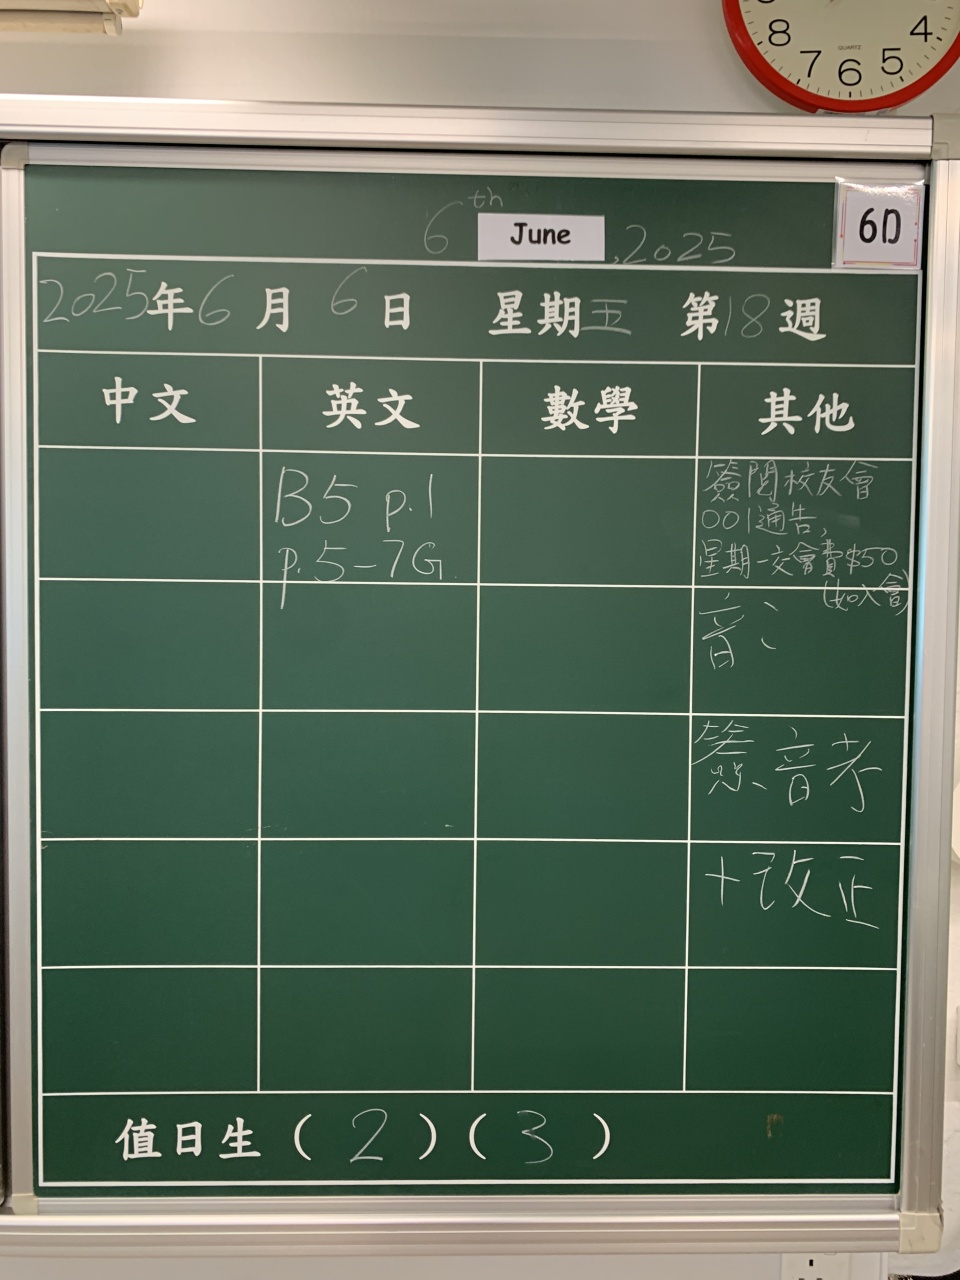 8 7 6 5 4
QUARTZ
6th June, 2025
6D
2025年6月6日 星期五 第18週
中文 英文 數學 其他
B5 p.1
p.5-7G
簽閱校友會
001通告,
星期一交會費$50
(如入會)
音
簽、音考
+改正
值日生(2)(3)